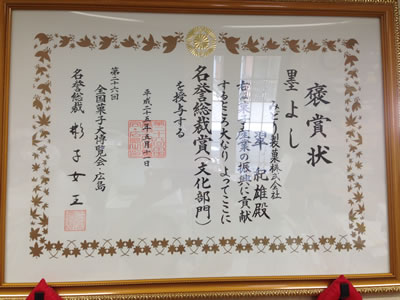 褒賞状
墨よし
みどり製菓株式会社
紀雄殿
産業の振興に貢献
するところ大なりよってここに
名誉総裁賞(文化部門)
を授与する
平成二十五年五月十一日
第二十六回
全国菓子大博覧会・広島
名誉総裁 彬子女王